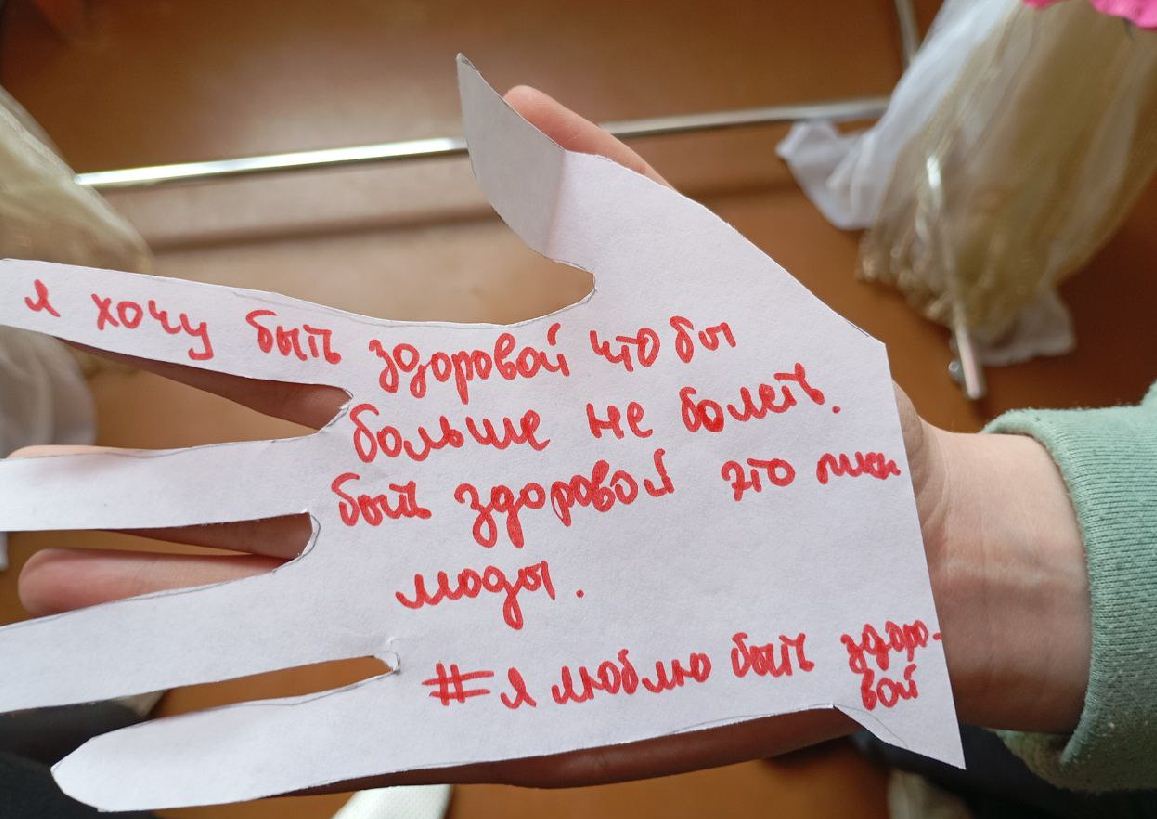 я хочу быть здоровой что бы
больше не болеть.
быть здоровой это пик
моды.
#я люблю быть здоро-
вой